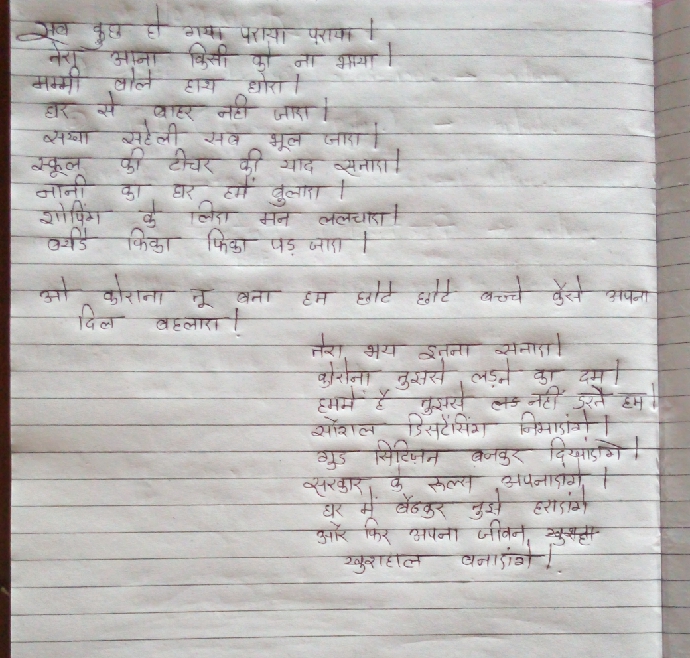 सब कुछ हो गया पराया पराया।
तेरा आना किसी को ना भाया।
मम्मी बोले हाथ धोए।
घर से बाहर नही जाए।
सखा सहेली सब भूल जाए।
स्कूल की टीचर की याद सताए।
नानी का घर हमें बुलाए।
शॉपिंग के लिए मन ललचाए।
फिका फिका पड़ जाए।
ओ कोरोना तू बता हम छोटे छोटे बच्चे कैसे अपना
दिल बहलाए!
तेरा भय इतना सताए।
कोरोना तुझसे लड़ने का दम।
हममें है तुझसे नहीं डरते हम।
सोशल डिसटेंसिंग निभाएंगे।
गुड सिटिज़न बनकर दिखाएंगे।
सरकार के रूल्स अपनाएंगे।
घर में बैठकर तुझे हराएंगे
और फिर अपना जीवन
खुशहाल बनाएंगे!